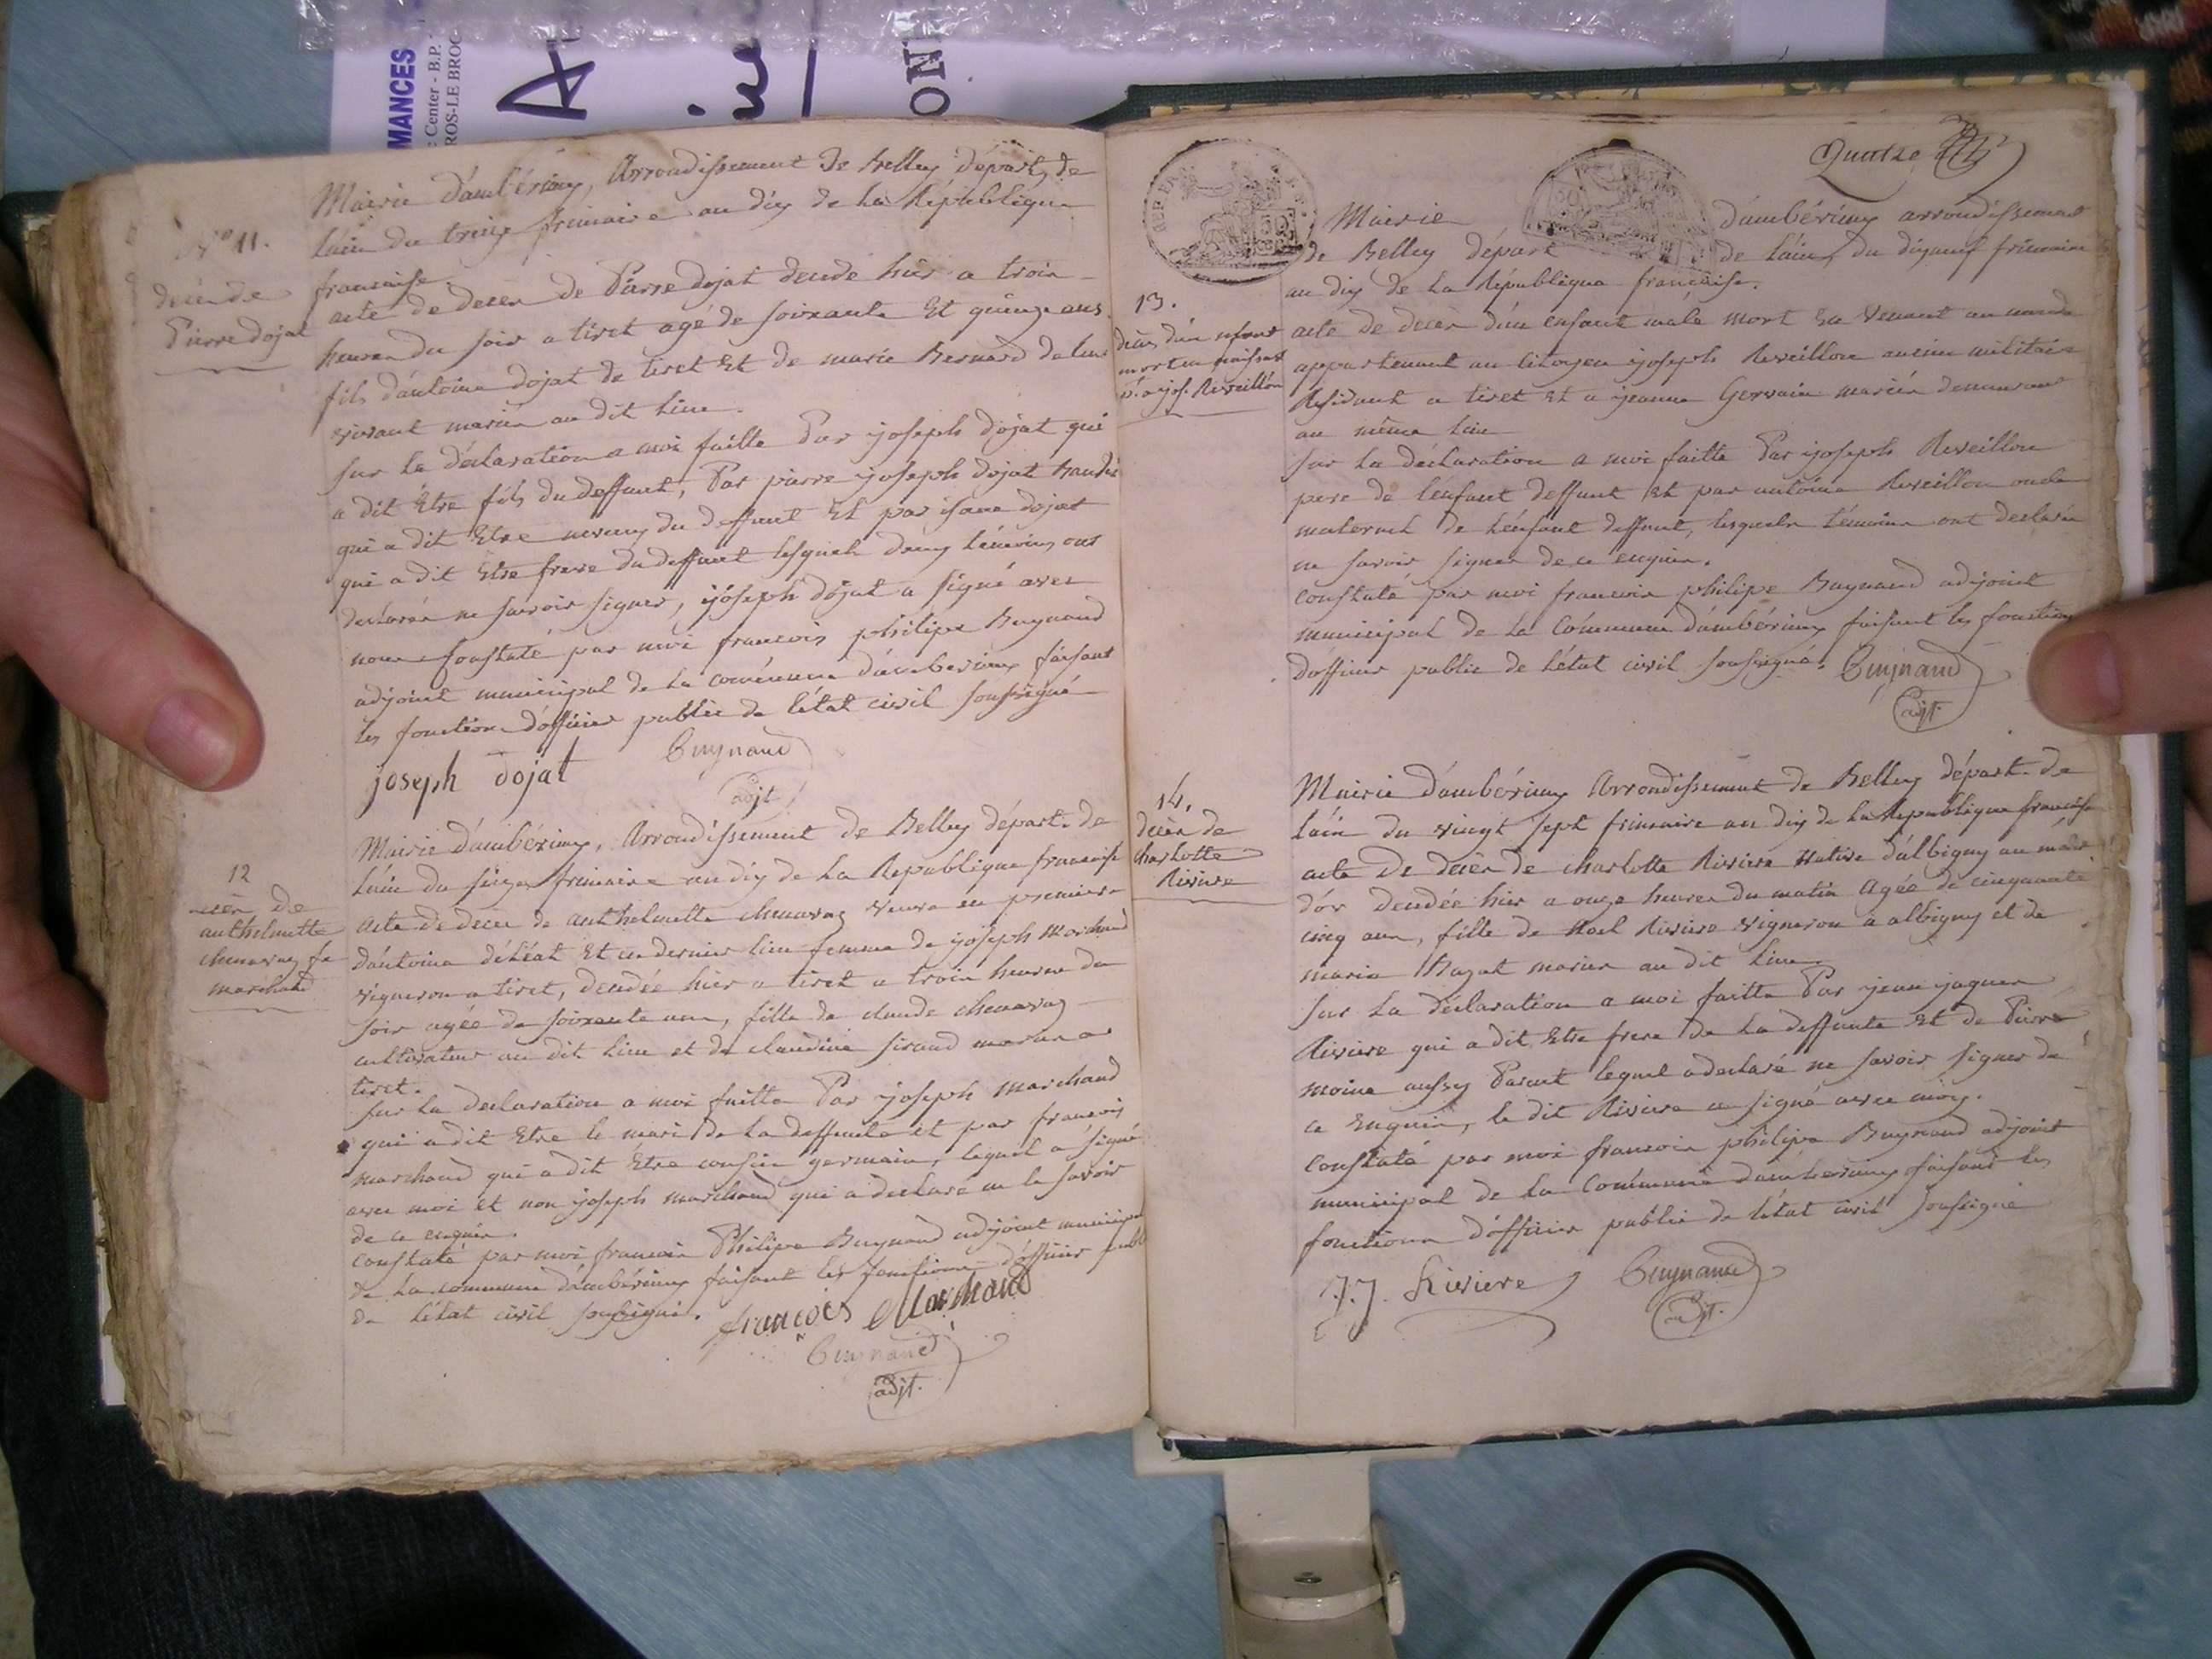 MANCES
Center - B.P.
ROS-LE BROC
ON
N° 11.
décès de
Pierre dojat
Mairie d'ambérieux, Arrondissement de Belley départ. de
l'ain du treize frimaire an dix de la République
francaise.
acte de deces de Pierre dojat décédé hier a trois
heures du soir a tiret agé de soixante Et quinze ans
fils d'antoine dojat de tiret Et de marie Bernard
vivant mariés au dit lieu.
sur la déclaration a moi faitte Par joseph dojat qui
a dit Etre fils du deffunt, Par pierre joseph dojat
qui a dit Etre neveux du deffunt Et par dojat
qui a dit Etre frere du deffunt lesquels deux témoins ont
declarés ne savoir signer, joseph dojat a signé avec
nous Constaté par moi francois philipe Buynand
adjoint municipal de la commune d'amberieux faisant
les fonctions d'officier public de l'état civil soussigné
joseph dojat Buynand
adjt
12
décès de
anthelmette
chenavaz fe
marchand
Mairie d'ambérieux, Arrondissement de Belley départ. de
l'ain du seize frimaire an dix de la Republique francaise
Acte de deces de anthelmette chenavaz veuve en premiere
d'antoine déléat Et en dernier lieu femme de joseph Marchand
vigneron a tiret, décédée hier a tiret a trois heures du
soir agée de soixante ans, fille de claude chenavaz
cultivateur au dit lieu et de claudine siraud mariés a
tiret.
sur la declaration a moi faitte Par joseph marchand
qui a dit Etre le mari de la deffunte et par francois
marchand qui a dit Etre cousin germain, lequel a signé
avec moi et non joseph marchand qui a declaré ne le savoir
de ce enquis.
constaté par moi francois Philipe Buynand adjoint municipal
de la commune d'ambérieux faisant les fonctions d'officier publ
de l'état civil soussigné. françois Marchand
Buynand
adjt.
Quatre
Mairie d'ambérieux arrondissement
de Belley départ de l'ain, du dixneuf frimaire
an dix de la République française.
13.
décès d'un enfant
mort en naissant
à jos. Reveillon
acte de décès d'un enfant male mort En Venant au monde
appartenant au citoyen joseph Reveillon ancien militaire
Residant a tiret Et a jeanne Gervais mariés demeurant
au même lieu
sur la déclaration a moi faitte Par joseph Reveillon
pere de l'enfant deffunt Et par antoine Reveillon oncle
maternel de l'enfant deffunt, lesquels témoins ont declarés
ne savoir signer de ce enquis.
constaté par moi francois philipe Buynand adjoint
municipal de la Commune d'ambérieux faisant les fonctions
d'officier public de l'état civil soussigné. Buynand
adjt.
14.
décès de
charlotte
Riviere
Mairie d'ambérieux Arrondissement de Belley départ. de
l'ain du vingt sept frimaire an dix de la Republique francaise
acte de décès de charlotte Riviere Native d'albigny au mont
d'or décédée hier a onze heures du matin Agée de cinquante
cinq ans, fille de Noel Riviere vigneron à albigny et de
marie Bazat mariés au dit lieu.
sur la déclaration a moi faitte Par jean jaques
Riviere qui a dit Etre frere de la deffunte Et de Pierre
moine aussy Parent lequel a declaré ne savoir signer de
ce Enquis, le dit Riviere a signé avec moy.
Constaté par moi francois philipe Buynand adjoint
municipal de la Commune d'amberieux faisant les
fonctions d'officier public de l'état civil soussigné
J.J. Riviere Buynand
adjt.